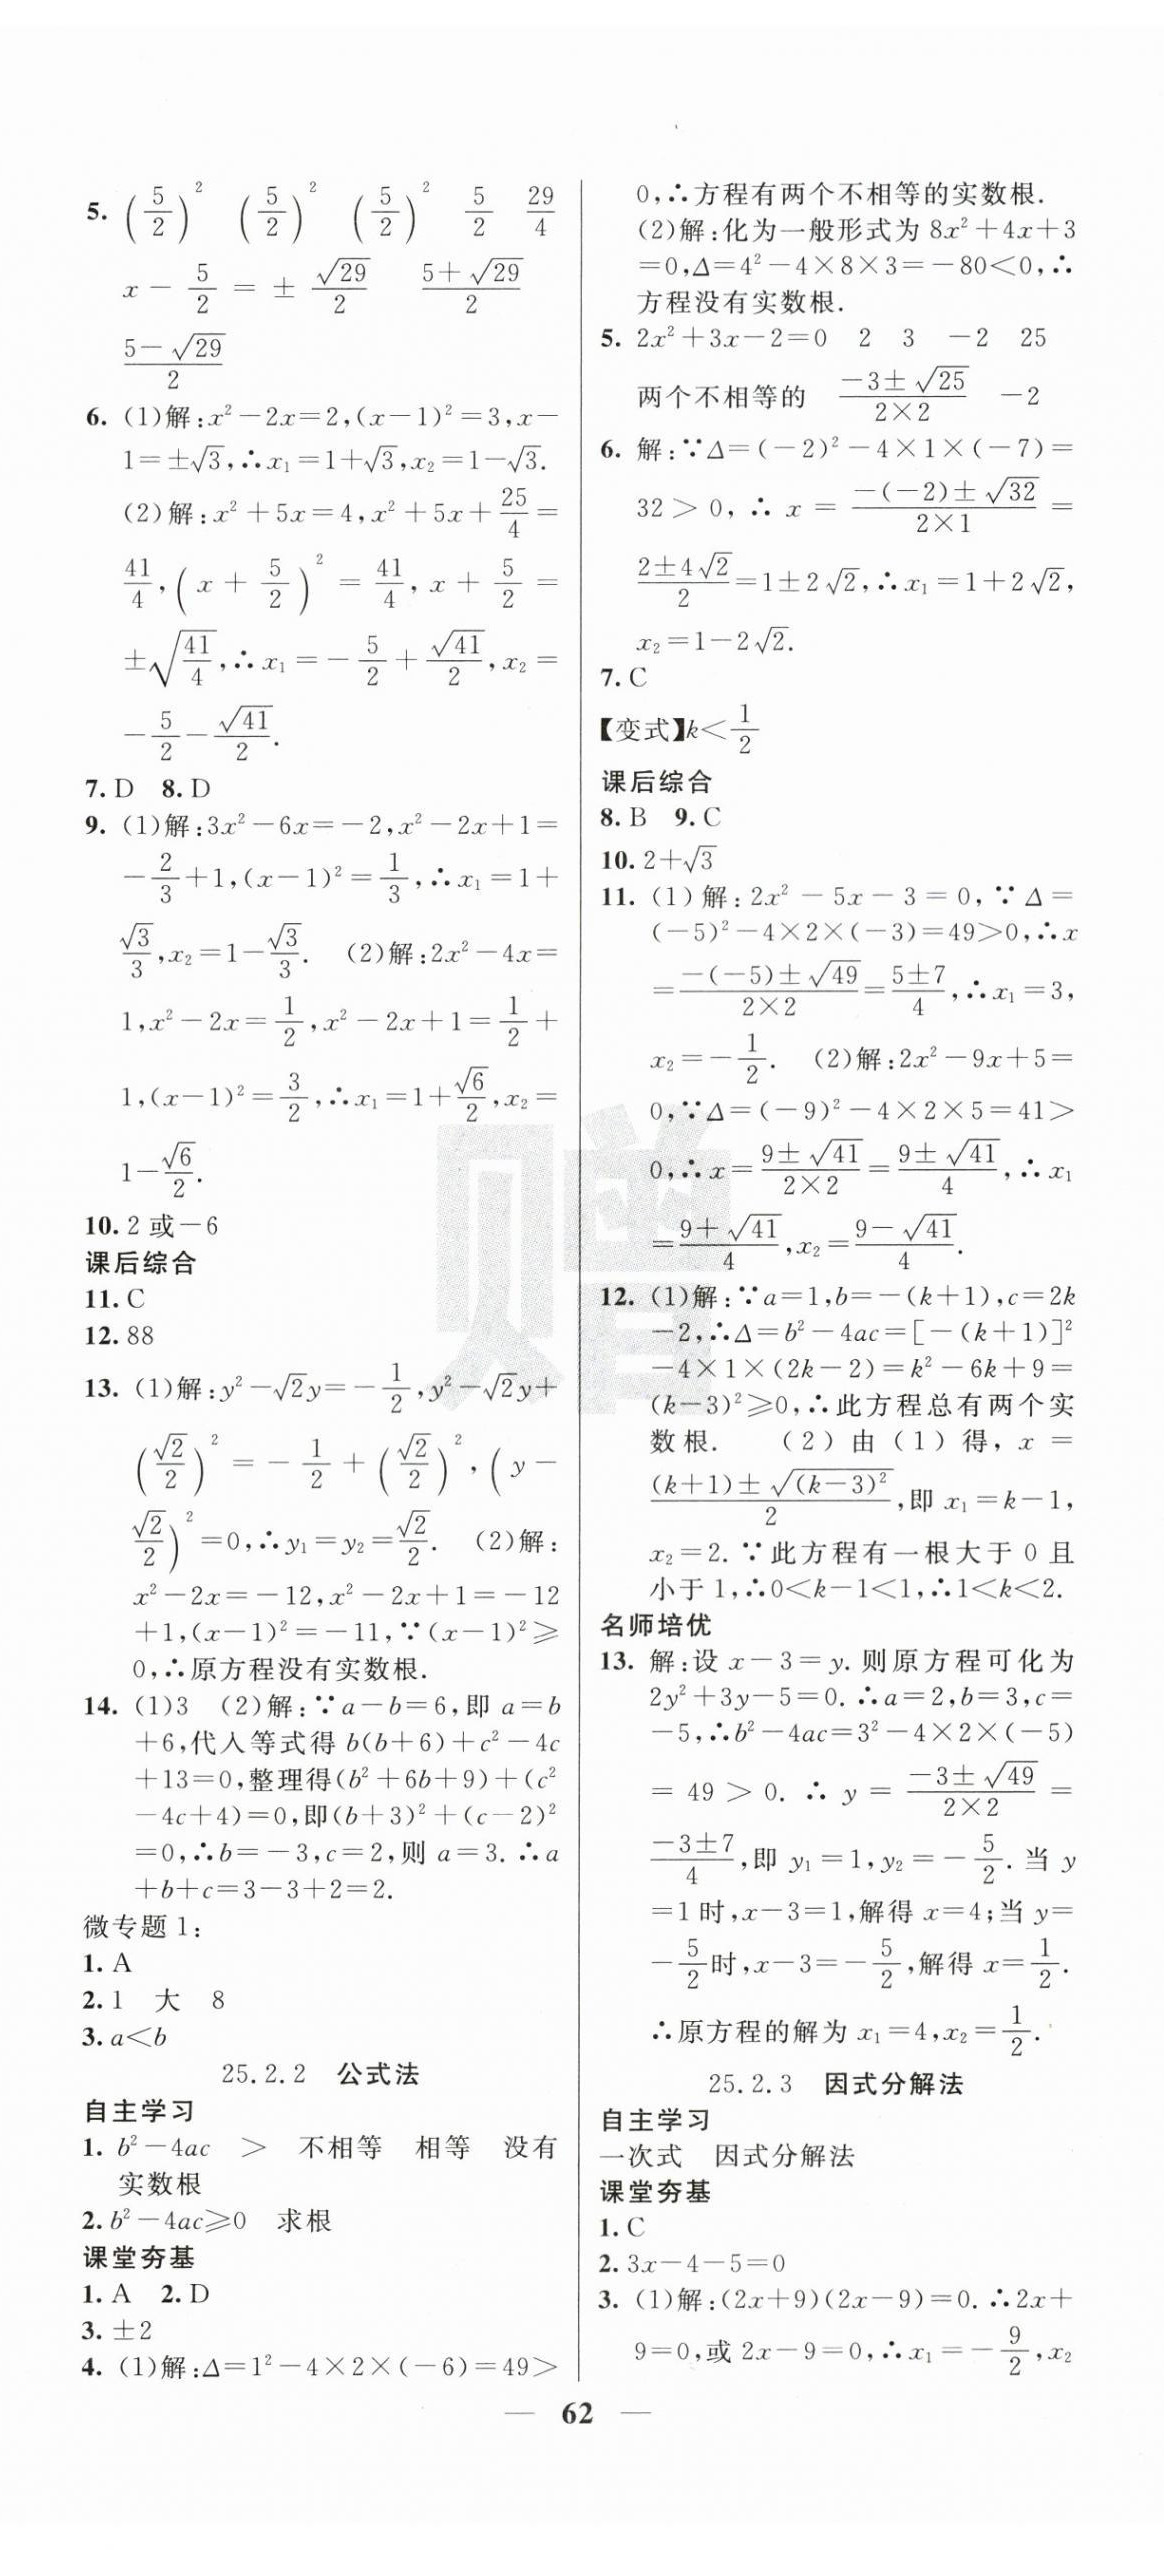 5. (5/2)² (5/2)² (5/2)² 5/2 29/4
x－5/2＝±√29/2 (5＋√29)/2
(5－√29)/2
6. (1)解:x²－2x＝2,(x－1)²＝3,x－
1＝±√3,∴x₁＝1＋√3,x₂＝1－√3.
(2)解:x²＋5x＝4,x²＋5x＋25/4＝
41/4,(x＋5/2)²＝41/4,x＋5/2＝
±√(41/4),∴x₁＝－5/2＋√41/2,x₂＝
－5/2－√41/2.
7. D 8. D
9. (1)解:3x²－6x＝－2,x²－2x＋1＝
－2/3＋1,(x－1)²＝1/3,∴x₁＝1＋
√3/3,x₂＝1－√3/3. (2)解:2x²－4x＝
1,x²－2x＝1/2,x²－2x＋1＝1/2＋
1,(x－1)²＝3/2,∴x₁＝1＋√6/2,x₂＝
1－√6/2.
10. 2或－6
课后综合
11. C
12. 88
13. (1)解:y²－√2y＝－1/2,y²－√2y＋
(√2/2)²＝－1/2＋(√2/2)²,(y－
√2/2)²＝0,∴y₁＝y₂＝√2/2. (2)解:
x²－2x＝－12,x²－2x＋1＝－12
＋1,(x－1)²＝－11,∵(x－1)²≥
0,∴原方程没有实数根.
14. (1)3 (2)解:∵a－b＝6,即a＝b
＋6,代入等式得b(b＋6)＋c²－4c
＋13＝0,整理得(b²＋6b＋9)＋(c²
－4c＋4)＝0,即(b＋3)²＋(c－2)²
＝0,∴b＝－3,c＝2,则a＝3.∴a
＋b＋c＝3－3＋2＝2.
微专题1:
1. A
2. 1 大 8
3. a＜b
25.2.2 公式法
自主学习
1. b²－4ac ＞ 不相等 相等 没有
实数根
2. b²－4ac≥0 求根
课堂夯基
1. A 2. D
3. ±2
4. (1)解:Δ＝1²－4×2×(－6)＝49＞
0,∴方程有两个不相等的实数根.
(2)解:化为一般形式为8x²＋4x＋3
＝0,Δ＝4²－4×8×3＝－80＜0,∴
方程没有实数根.
5. 2x²＋3x－2＝0 2 3 －2 25
两个不相等的 (－3±√25)/(2×2) －2
6. 解:∵Δ＝(－2)²－4×1×(－7)＝
32＞0,∴x＝(－(－2)±√32)/(2×1)＝
(2±4√2)/2＝1±2√2,∴x₁＝1＋2√2,
x₂＝1－2√2.
7. C
【变式】k＜1/2
课后综合
8. B 9. C
10. 2＋√3
11. (1)解:2x²－5x－3＝0,∵Δ＝
(－5)²－4×2×(－3)＝49＞0,∴x
＝(－(－5)±√49)/(2×2)＝(5±7)/4,∴x₁＝3,
x₂＝－1/2. (2)解:2x²－9x＋5＝
0,∵Δ＝(－9)²－4×2×5＝41＞
0,∴x＝(9±√41)/(2×2)＝(9±√41)/4,∴x₁
＝(9＋√41)/4,x₂＝(9－√41)/4.
12. (1)解:∵a＝1,b＝－(k＋1),c＝2k
－2,∴Δ＝b²－4ac＝[－(k＋1)]²
－4×1×(2k－2)＝k²－6k＋9＝
(k－3)²≥0,∴此方程总有两个实
数根. (2)由(1)得,x＝
((k＋1)±√(k－3)²)/2,即x₁＝k－1,
x₂＝2.∵此方程有一根大于0且
小于1,∴0＜k－1＜1,∴1＜k＜2.
名师培优
13. 解:设x－3＝y.则原方程可化为
2y²＋3y－5＝0.∴a＝2,b＝3,c＝
－5,∴b²－4ac＝3²－4×2×(－5)
＝49＞0.∴y＝(－3±√49)/(2×2)＝
(－3±7)/4,即y₁＝1,y₂＝－5/2.当y
＝1时,x－3＝1,解得x＝4;当y＝
－5/2时,x－3＝－5/2,解得x＝1/2.
∴原方程的解为x₁＝4,x₂＝1/2.
25.2.3 因式分解法
自主学习
一次式 因式分解法
课堂夯基
1. C
2. 3x－4－5＝0
3. (1)解:(2x＋9)(2x－9)＝0.∴2x＋
9＝0,或2x－9＝0,∴x₁＝－9/2,x₂
— 62 —
赠